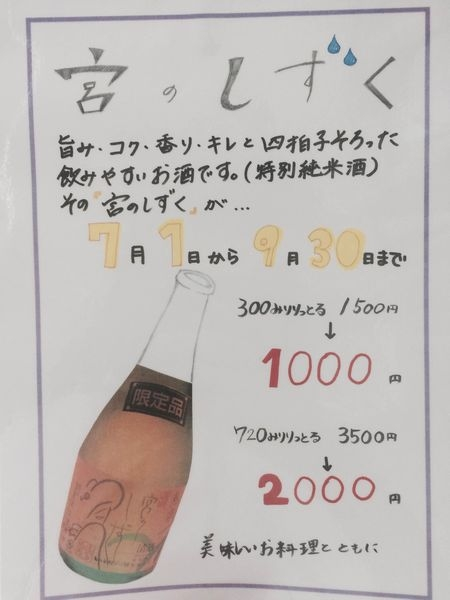 宮のしずく
旨み・コク・香り・キレと四拍子そろった
飲みやすいお酒です。(特別純米酒)
その『宮のしずく』が…
7月1日から9月30日まで
300みりりっとる 1500円
↓
1000円
720みりりっとる 3500円
↓
2000円
美味しいお料理とともに
限定品
宮の
しずく